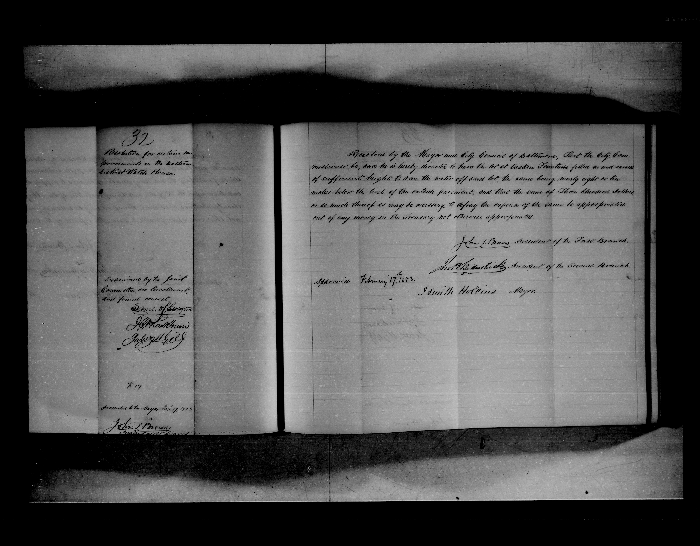 32
Resolution for certain im
provements in the Eastern
District Station House.
Examined by the Joint
Committee on Enrollment
and found correct.
Presented to the Mayor Feby 17 1853
John S. Brown
Resolved by the Mayor and City Council of Baltimore, That the City Com
missioner be, and he is hereby directed to have the lot at Eastern Fountain filled in and raised
of sufficient height to turn the water off and let the same being
below the level of the outside pavement, and that the sum of Three Hundred dollars
or so much thereof as may be necessary to defray the expense of the same be appropriated
out of any money in the treasury not otherwise appropriated.
John S. Brown President of the First Branch.
President of the Second Branch
Approved February 17th 1853.
J. Smith Hollins Mayor